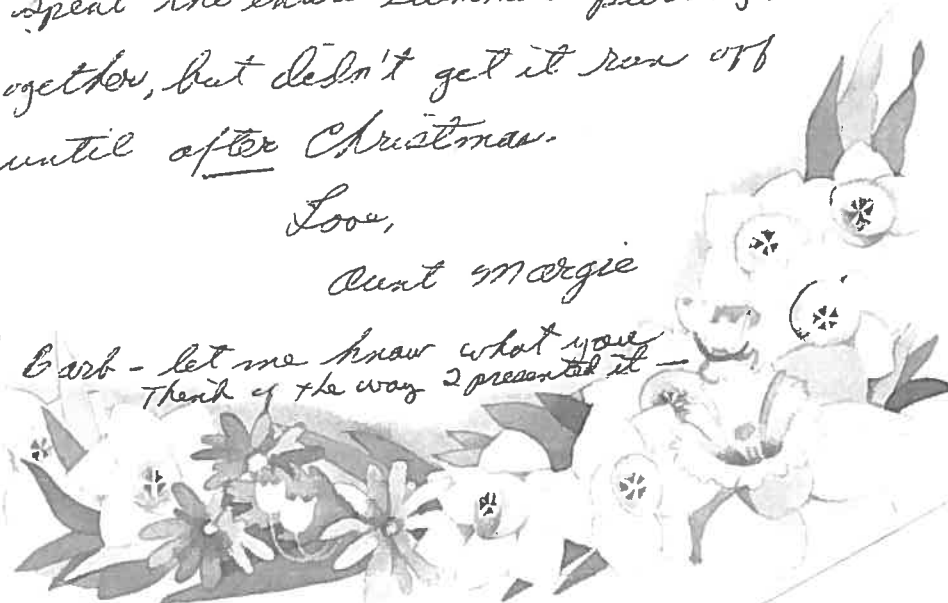 spent the entire summer
ogether, but didn't get it run off
until after Christmas.
Love,
Aunt Margie
Barb - let me know what you
think of the way I presented it -